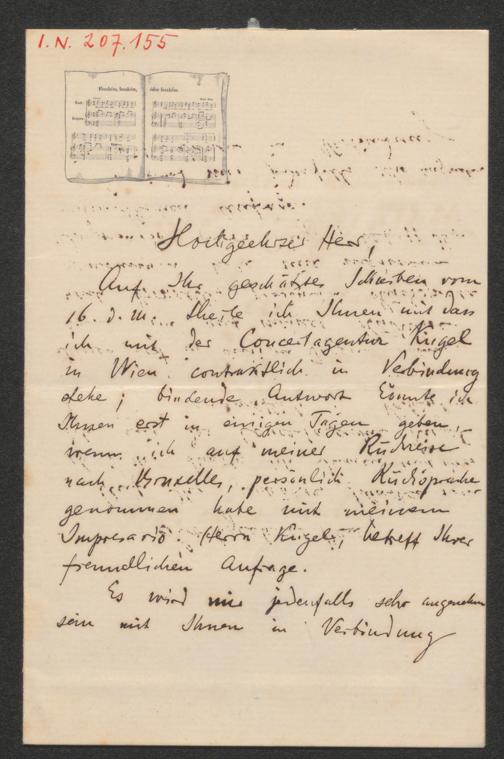 I.N. 207.155
Hochgeehrter Herr,
Auf Ihr geschätztes Schreiben vom
16. d. M. theile ich Ihnen mit dass
ich mit der Concertagentur Kugel
in Wien contractlich in Verbindung
stehe; bindende Antwort könnte ich
Ihnen erst in einigen Tagen geben,
wenn ich auf meiner Rückreise
nach Bruxelles, persönlich Rücksprache
genommen habe mit meinem
Impresario Herrn Kugel, betreff Ihrer
freundlichen Anfrage.
Es wird mir jedenfalls sehr angenehm
sein mit Ihnen in Verbindung